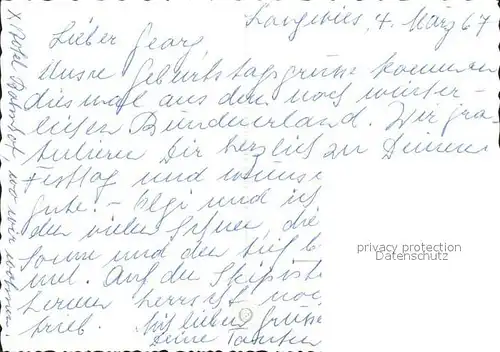 Langwies, 4. März 67
Lieber Georg,
Unsre Geburtstagsgrüsse kommen
diesmal aus dem noch winter-
lichen Bündnerland. Wir gra-
tulieren Dir herzlich zu Deinem
Festtag und wünsc
gute. - und ich
den vielen Schnee, die
Sonne und den tief b
mel. Auf der Skipiste
herrscht noc
trieb. Mit lieben Grüsse
Deine Tanten
X Hotel wo wir wohnen.
privacy protection
Datenschutz